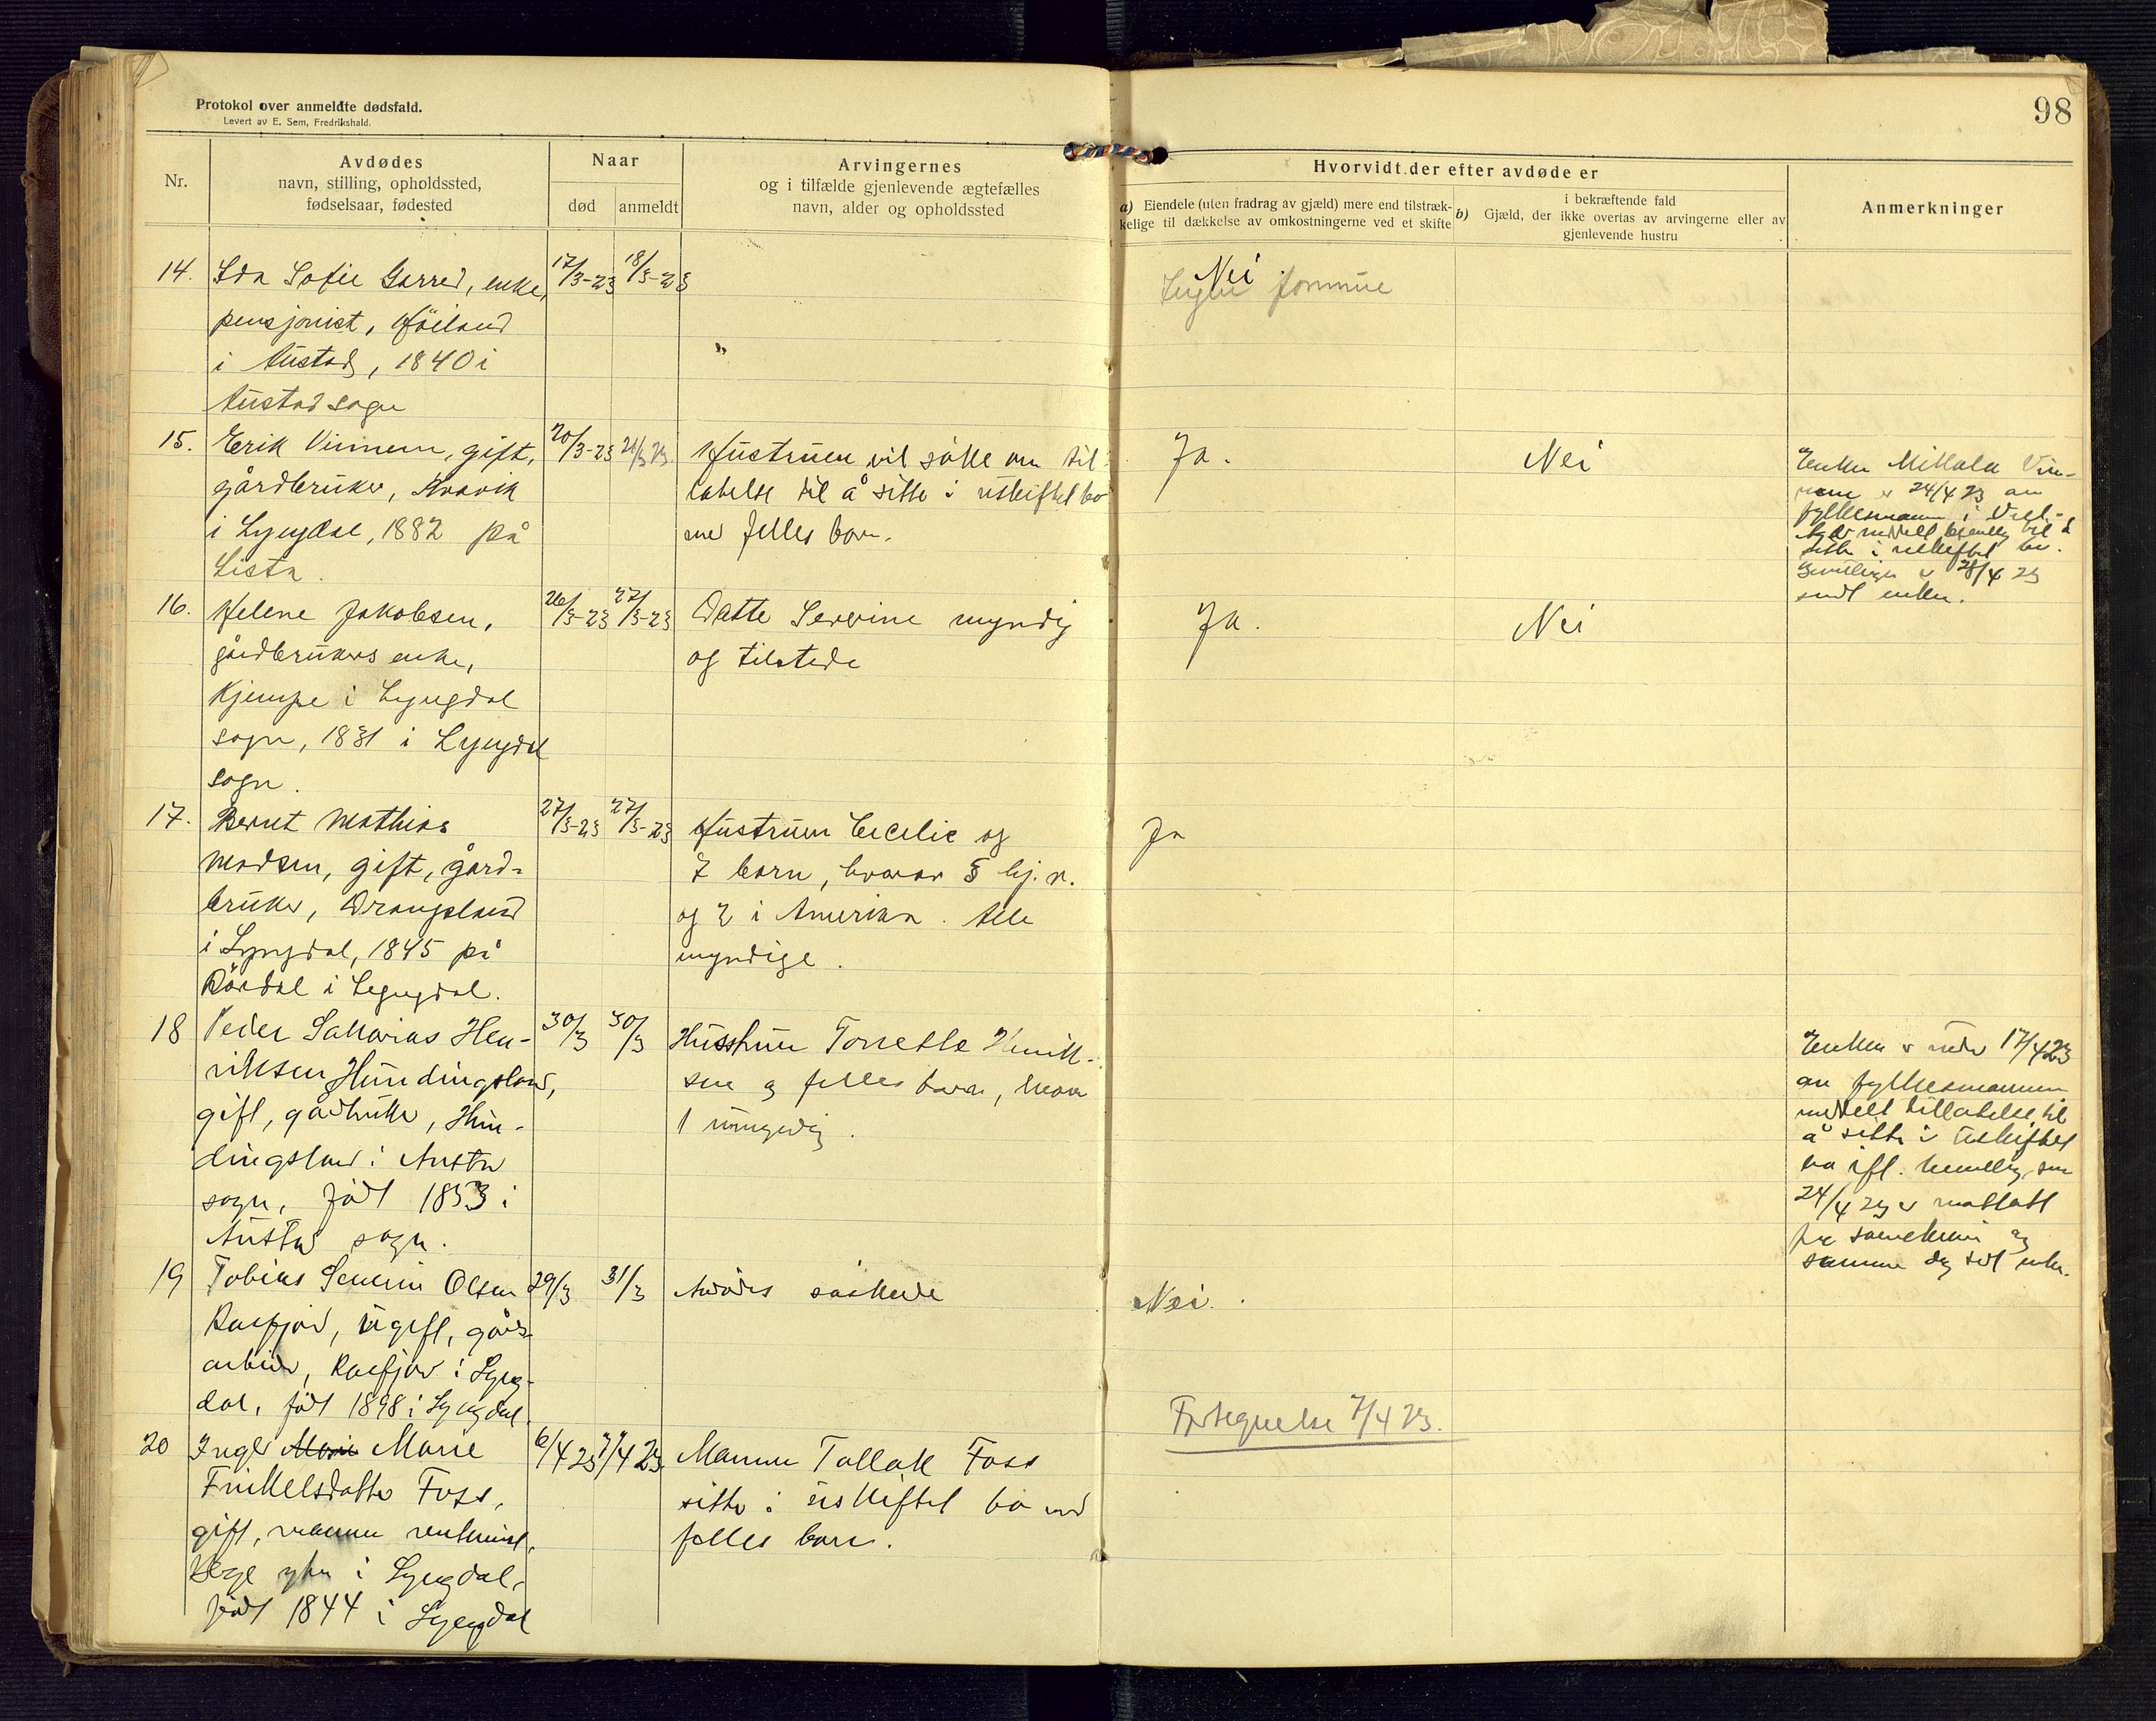 Protokol over anmeldte dødsfald.
Levert av E. Sem, Fredrikshald.
98
Nr.
Avdødes
navn, stilling, opholdssted,
fødselsaar, fødested
Naar
død
anmeldt
Arvingernes
og i tilfælde gjenlevende ægtefælles
navn, alder og opholdssted
Hvorvidt der efter avdøde er
a) Eiendele (uten fradrag av gjæld) mere end tilstræk-
kelige til dækkelse av omkostningerne ved et skifte
b) Gjæld, der
i bekræftende fald
ikke overtas av arvingerne eller av
gjenlevende hustru
Anmerkninger
14.
Ida Sofie Garred, enke,
pensjonist,
i Austad, 1840 i
Austad sogn
17/3-23
18/3-23
"
Nei
15.
Erik Vinnem, gift,
gårdbruker, Kvavik
i Lyngdal, 1882 på
Lista.
20/3-23
21/3 23.
Hustruen vil søke om til-
latelse til å sitte i uskiftet bo
me felles barn.
Ja.
Nei
Enken Mikkala Vin-
nem er 24/4 23 av
fylkesmannen i Vest-
sitte i uskiftet bo.
28/4 23
sendt enken.
16.
Helene Jakobsen,
gårdbrukers enke,
Kjempe i Lyngdal
sogn, 1831 i Lyngdal
sogn.
26/3-23
27/3-23
Datte Severine myndig
og tilstede
Ja.
Nei
17.
Bernt Mathias
Madsen, gift, gård-
bruker, Drangsland
i Lyngdal, 1845 på
Rördal i Lyngdal.
27/3-23
27/3-23
Hustruen Cecelie og
7 barn, hvorav 5 hj. v.
og 2 i Amerika. Alle
myndige.
Ja
18
Peder Sakarias Hen-
riksen Hundingsland,
gift, gårdbruker, Hun-
dingsland i Austad
sogn, født 1853 i
Austad sogn.
30/3
30/3
Husstruen Tonette Henrik-
sen og felles barn, hvorav
1 umyndig.
Enken er under 17/4 23
av fylkesmannen
meddelt tillatelse til
å sitte i uskiftet
bo ifl. bevilling som
24/4 23 er mottatt
fra og
samme dag sendt enken.
19
Tobias Severin Olsen
Rosfjord, ugift, gårds-
arbeider, Rosfjord i Lyng-
dal, født 1898 i Lyngdal.
29/3
31/3
Avdødes søskende
Nei.
20
Inger Marie Marie
Fredriksdatter Foss,
gift, mannen
i Lyngdal,
født 1844 i Lyngdal
6/4 23
7/4 23.
Mannen Tollak Foss
sitter i uskiftet bo med
felles barn.
Fortegnelse 7/4 23.